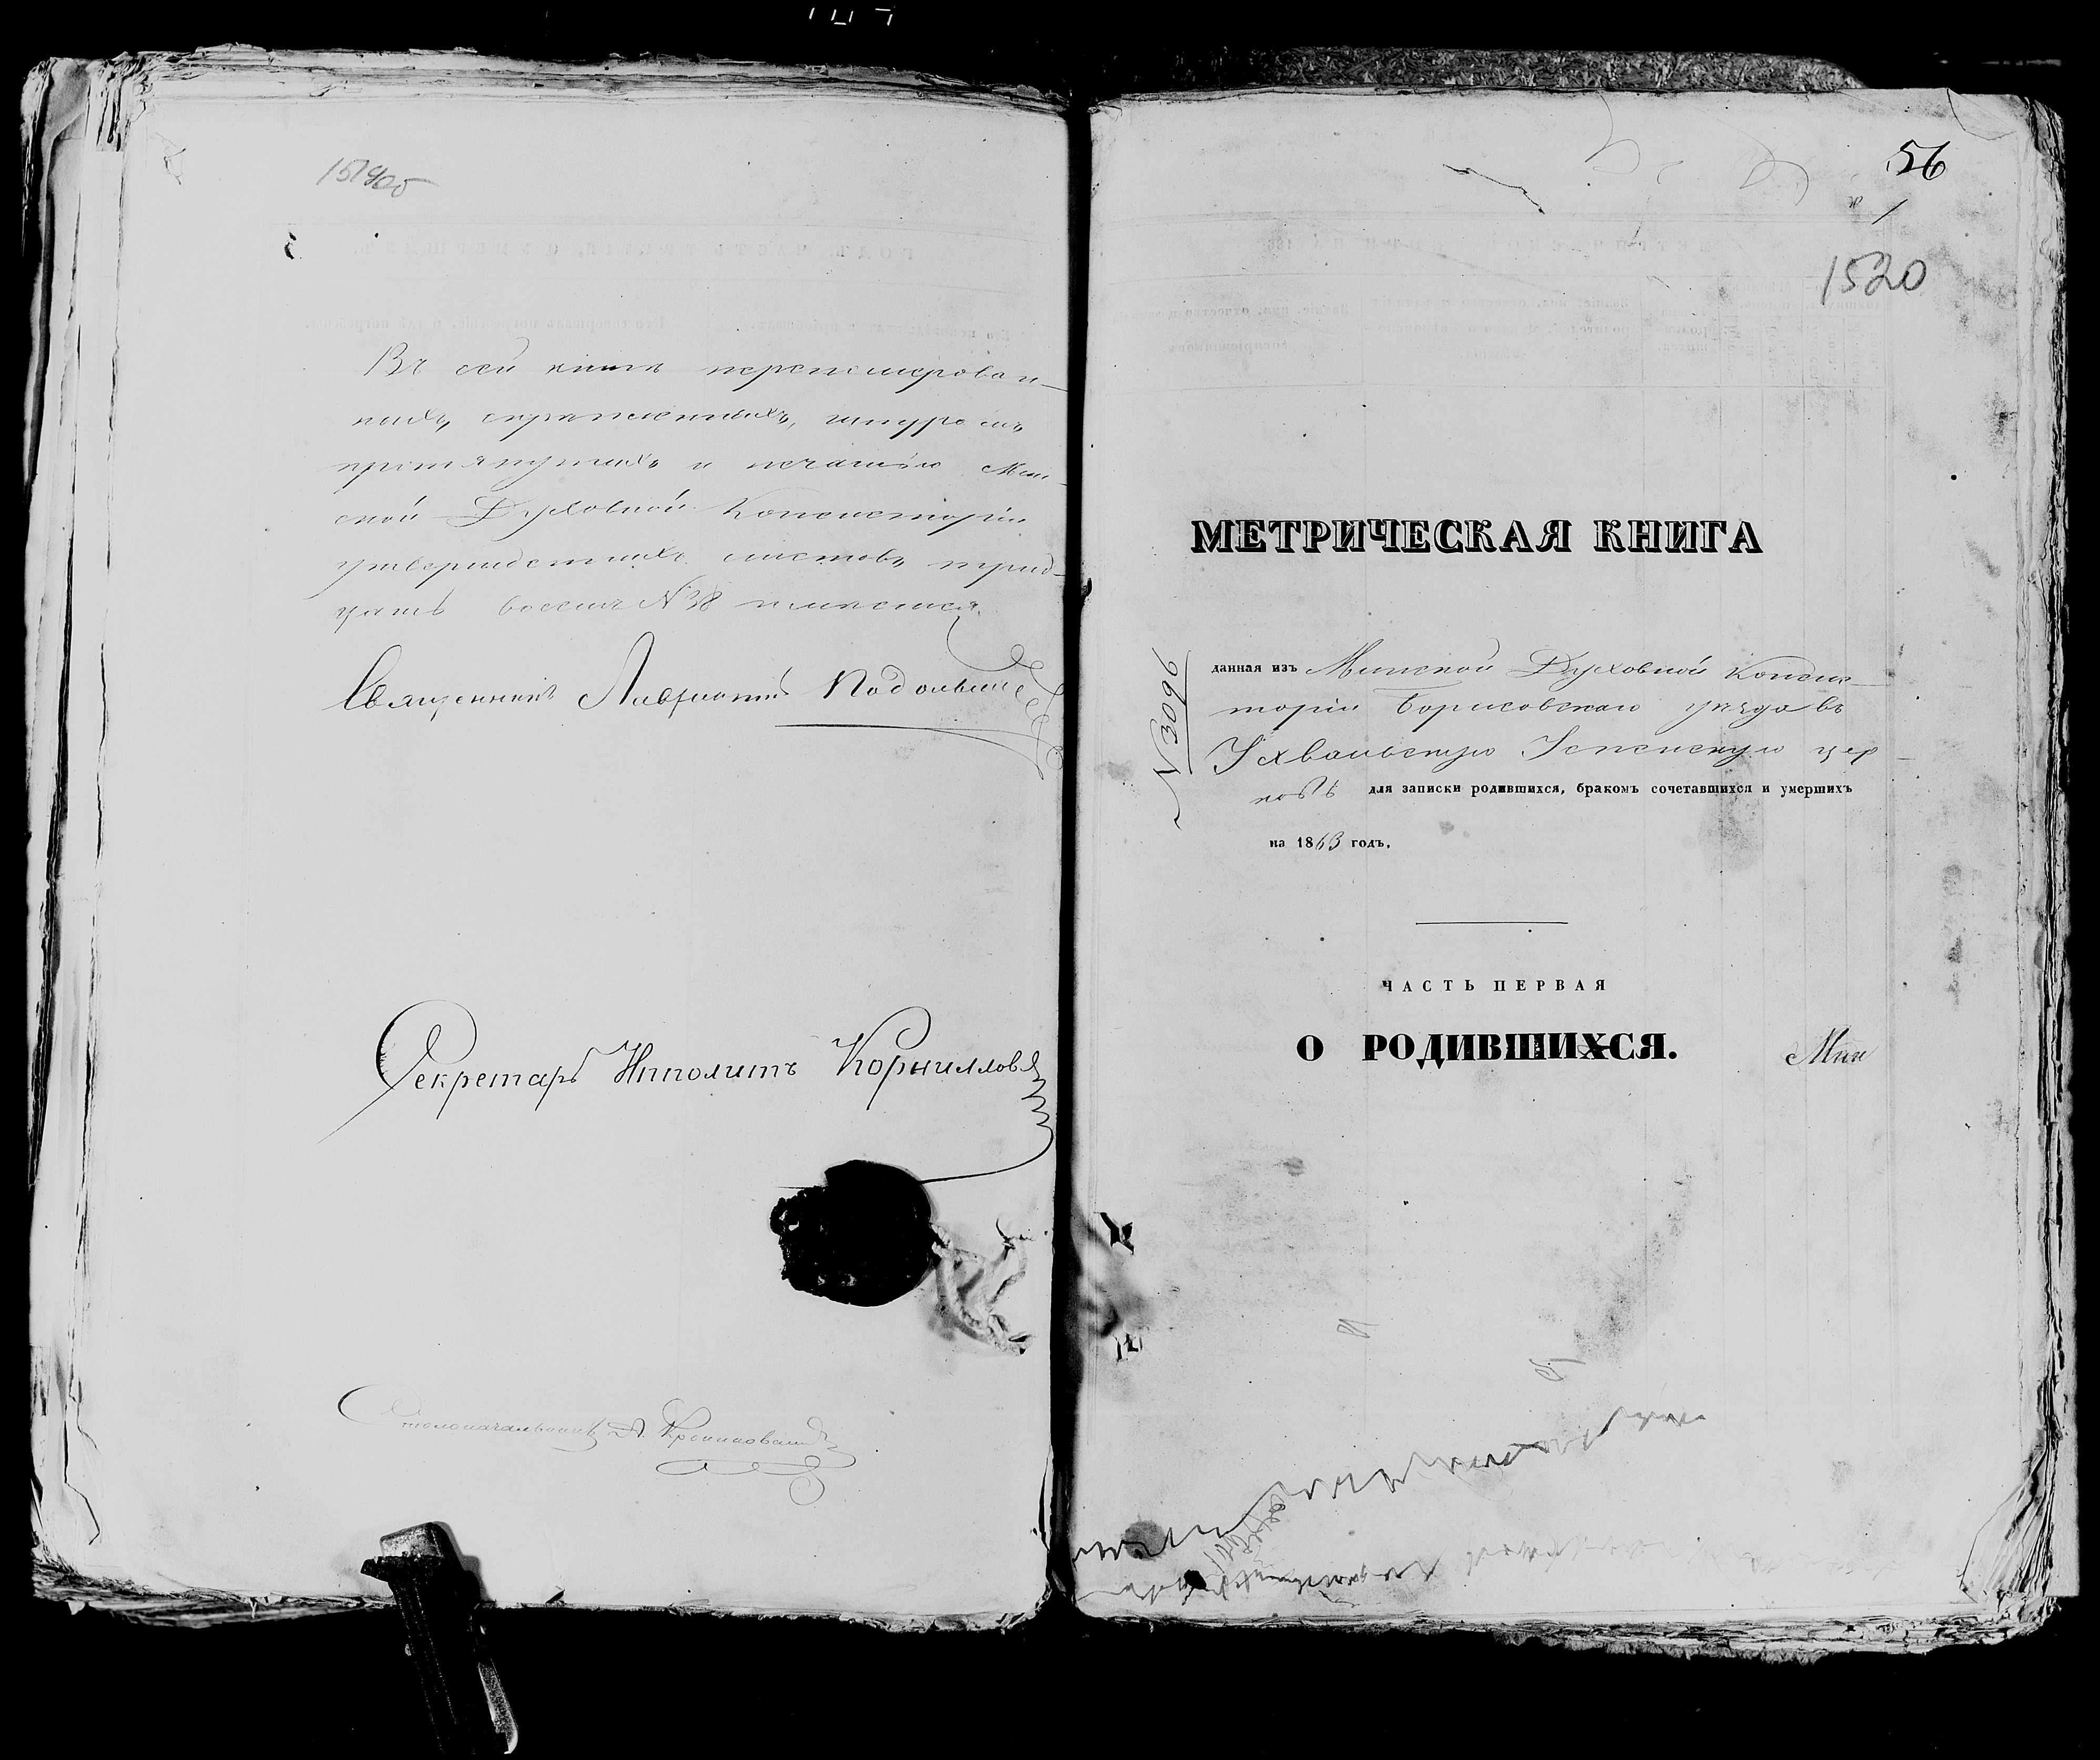 151 об
Въ сей книгѣ перенумерован-
ныхъ, скрѣпленныхъ, шнуромъ
протянутыхъ и печатью Мин-
ской Духовной Консисторіи
утвержденныхъ листовъ трид-
цать восемь №38 имѣется.
Священникъ Подольскій
Секретарь Ипполитъ Корнилловъ
Столоначальникъ
56
1
1520
МЕТРИЧЕСКАЯ КНИГА
№ 3096
данная изъ Минской Духовной Консис-
торіи Борисовскаго уѣзда въ
Ухвальскую Успенскую цер-
ковь для записки родившихся, бракомъ сочетавшихся и умершихъ
на 1863 годъ.
ЧАСТЬ ПЕРВАЯ
О РОДИВШИХСЯ.
Мин